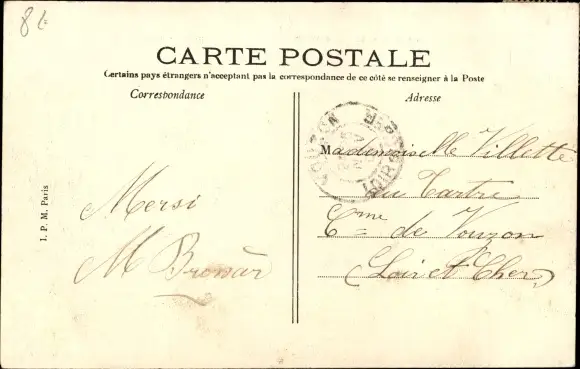 82
CARTE POSTALE
Certains pays étrangers n'acceptent pas la correspondance de ce côté se renseigner à la Poste
Correspondance
Adresse
Mademoiselle Villette
au Tartre
Cme de Vouzon
(Loir et Cher)
Mersi
M Bronsàr
I. P. M. Paris